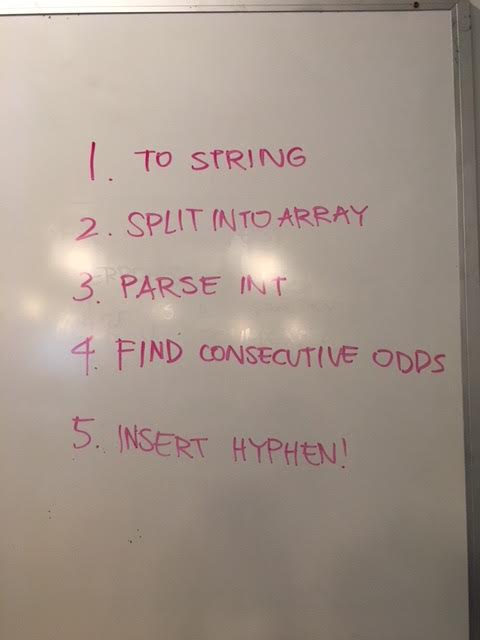 1. TO STRING
2. SPLIT INTO ARRAY
3. PARSE INT
4. FIND CONSECUTIVE ODDS
5. INSERT HYPHEN!